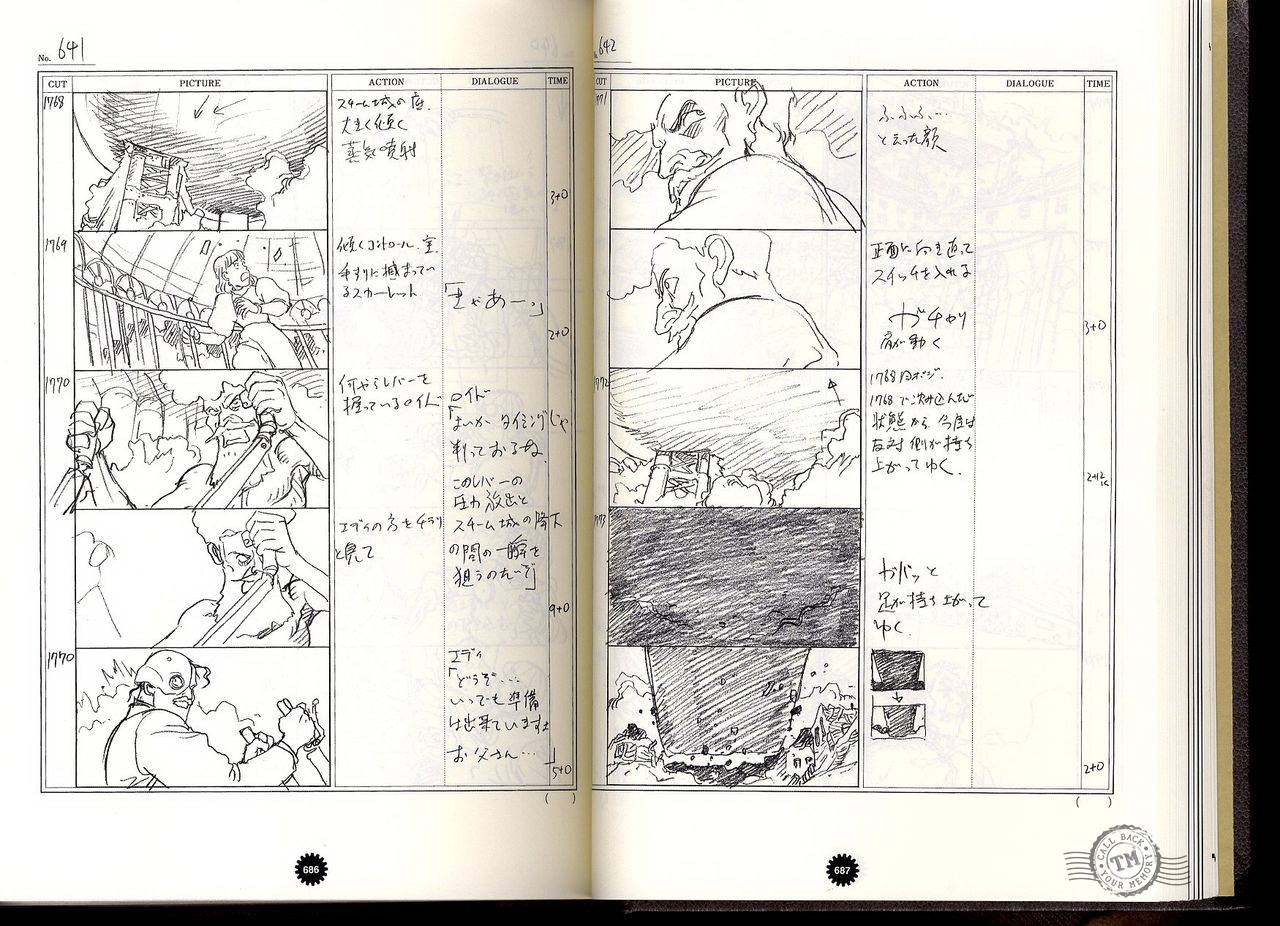 No. 641
CUT PICTURE ACTION DIALOGUE TIME
1768
スチーム城の底
大きく傾く
蒸気噴射
3+0
1769
傾くコントロール室
手すりに掴まってい
るスカーレット
「きゃあーっ」
2+0
1770
何やらレバーを
握っているロイド
ロイド
「よいか タイミングじゃ
判っておるな
このレバーの
圧力放出と
スチーム城の降下
の間の一瞬を
狙うのだぞ」
エディの方をチラリ
と見て
9+0
1770
エディ
「どうぞ…
いつでも準備
は出来ていますよ
お父さん…」
5+0
( )
686
642
CUT PICTURE ACTION DIALOGUE TIME
771
ふふふ…
と云った顔
正面に向き直って
スイッチを入れる
ガチャリ
肩が動く
3+0
772
1768同ポジ.
1768で沈み込んだ
状態から 今度は
反対側が持ち
上がってゆく.
2+12K
773
ガバッと
足が持ち上がって
ゆく
2+0
( )
687
CALL BACK
TM
YOUR MEMORY